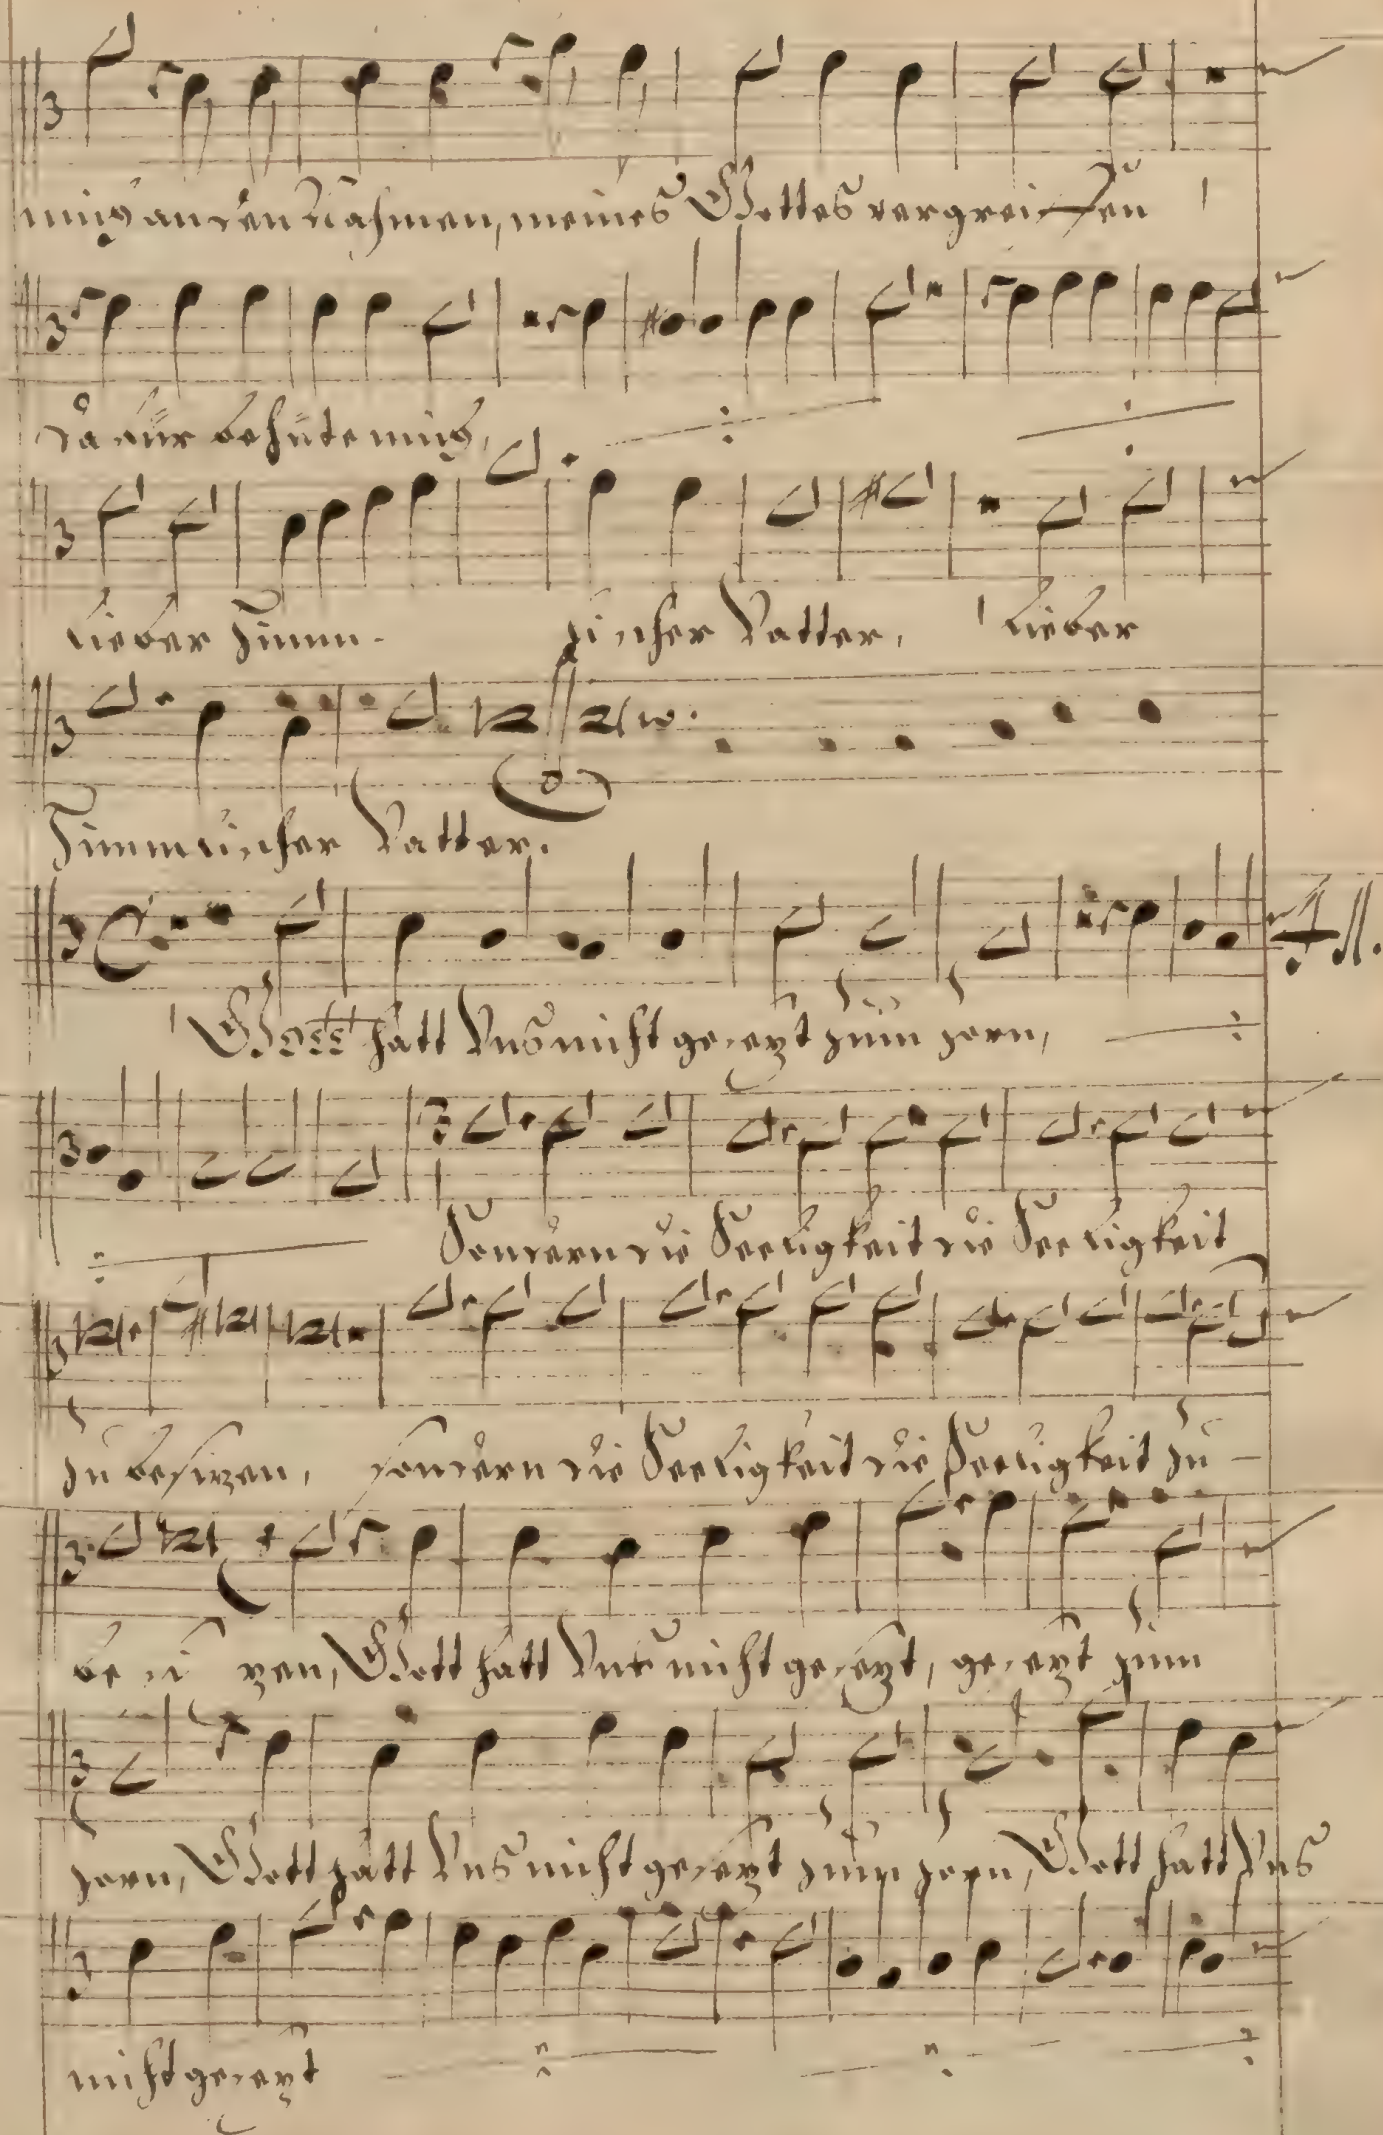 mich an den Nahmen, meines Gottes vergreiffen
da für behüte mich,
lieber Himm- lischer Vatter, lieber
Himmlischer Vatter.
Gott hatt Vns nicht gesezt zum zorn,
Sondern die Seeligkeit die Seeligkeit
zu besizen, sondern die Seeligkeit die Seeligkeit zu -
be si zen, Gott hatt Vns nicht gesezt, gesezt zum
zorn, Gott hatt Vns nicht gesezt zum zorn, Gott hatt Vns
nicht gesezt